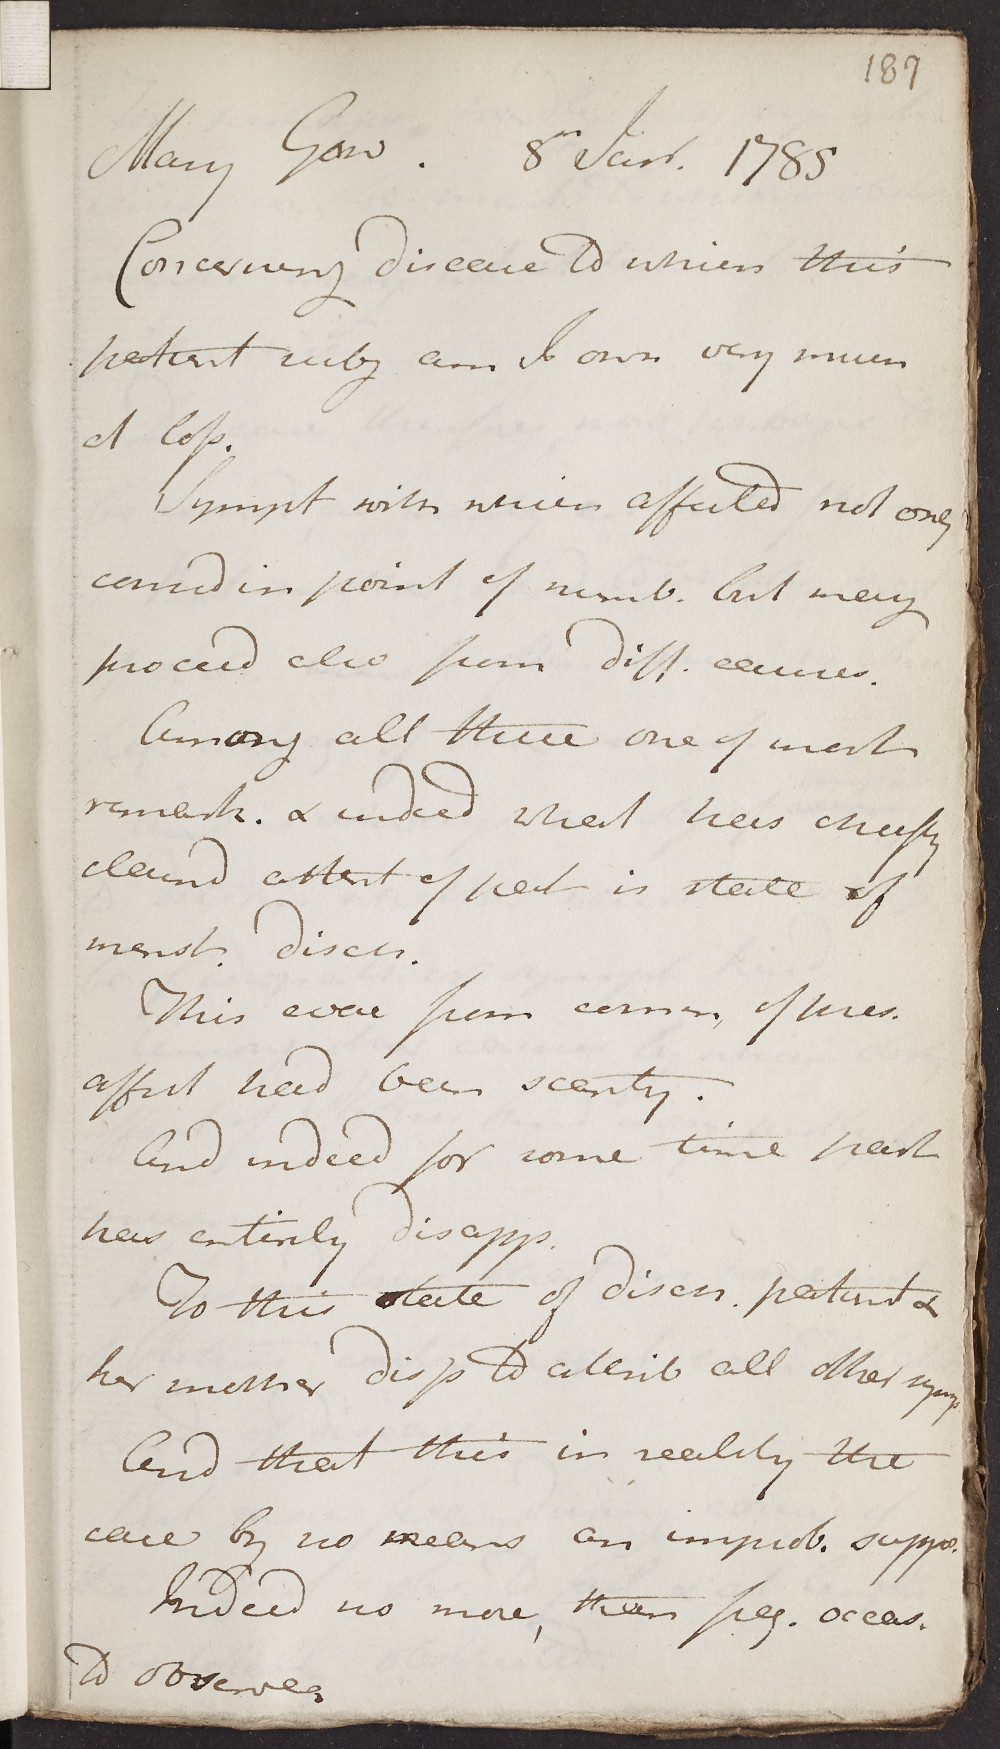 187
Mary Gow. 8th Janr. 1785
Concerning disease to which this
patient subj am I own very much
at loss.
Sympt with which affected not only
consid in point of numb. but may
proceed also from diff. causes.
Among all these one of most
remark. & indeed what has chiefly
claimd attent of pat is state of
menst. disch.
This even from comm. of pres.
affect had been scanty.
And indeed for some time past
has entirely disapp.
To this state of disch. patient &
her mother disp to attrib all other symp
And that this in reality the
case by no means an improb. suppo.
Indeed no more, than freq. occas.
to observe